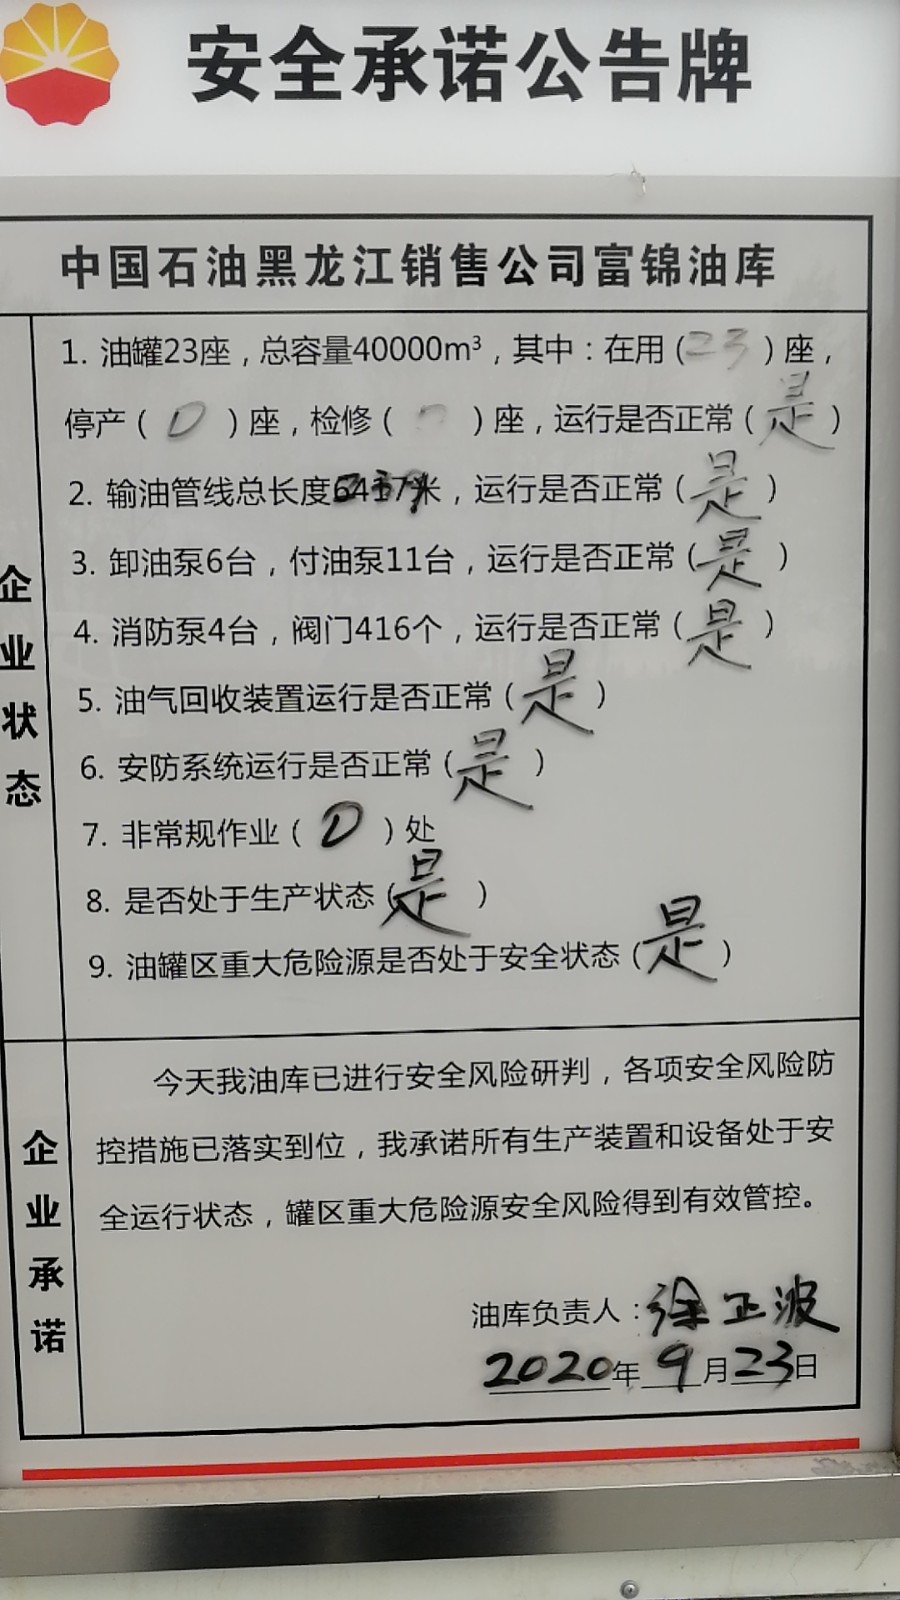 安全承诺公告牌
中国石油黑龙江销售公司富锦油库
企业状态
1. 油罐23座，总容量40000m³，其中：在用(23)座，
停产（0）座，检修（0）座，运行是否正常（是）
2. 输油管线总长度米，运行是否正常（是）
3. 卸油泵6台，付油泵11台，运行是否正常（是）
4. 消防泵4台，阀门416个，运行是否正常（是）
5. 油气回收装置运行是否正常（是）
6. 安防系统运行是否正常（是）
7. 非常规作业（0）处
8. 是否处于生产状态（是）
9. 油罐区重大危险源是否处于安全状态（是）
企业承诺
今天我油库已进行安全风险研判，各项安全风险防
控措施已落实到位，我承诺所有生产装置和设备处于安
全运行状态，罐区重大危险源安全风险得到有效管控。
油库负责人：徐正波
2020年9月23日